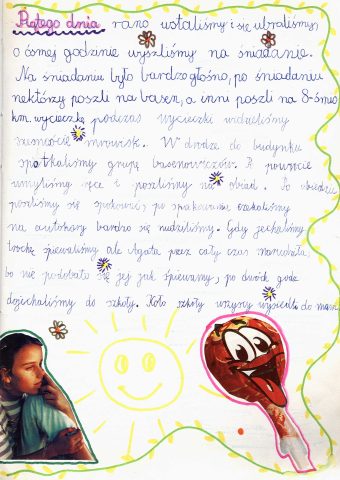 Piątego dnia rano wstaliśmy i się ubraliśmy,
o ósmej godzinie wyszliśmy na śniadanie.
Na śniadaniu było bardzo głośno, po śniadaniu
niektórzy poszli na basen, a inni poszli na 8-śmio
km. wycieczkę podczas wycieczki widzieliśmy
sześcioście mrowisk. W drodze do budynku
spotkaliśmy grupę basenowiczów. Po powrocie
umyliśmy ręce i poszliśmy na obiad. Po obiedzie
poszliśmy się spakować, po spakowaniu czekaliśmy
na autokary bardzo się nudziliśmy. Gdy jechaliśmy
trochę śpiewaliśmy ale Agata przez cały czas narzekała,
bo nie podobało się jej jak śpiewamy, po dwóch godz
dojechaliśmy do szkoły. Koło szkoły wszyscy wysiedli do